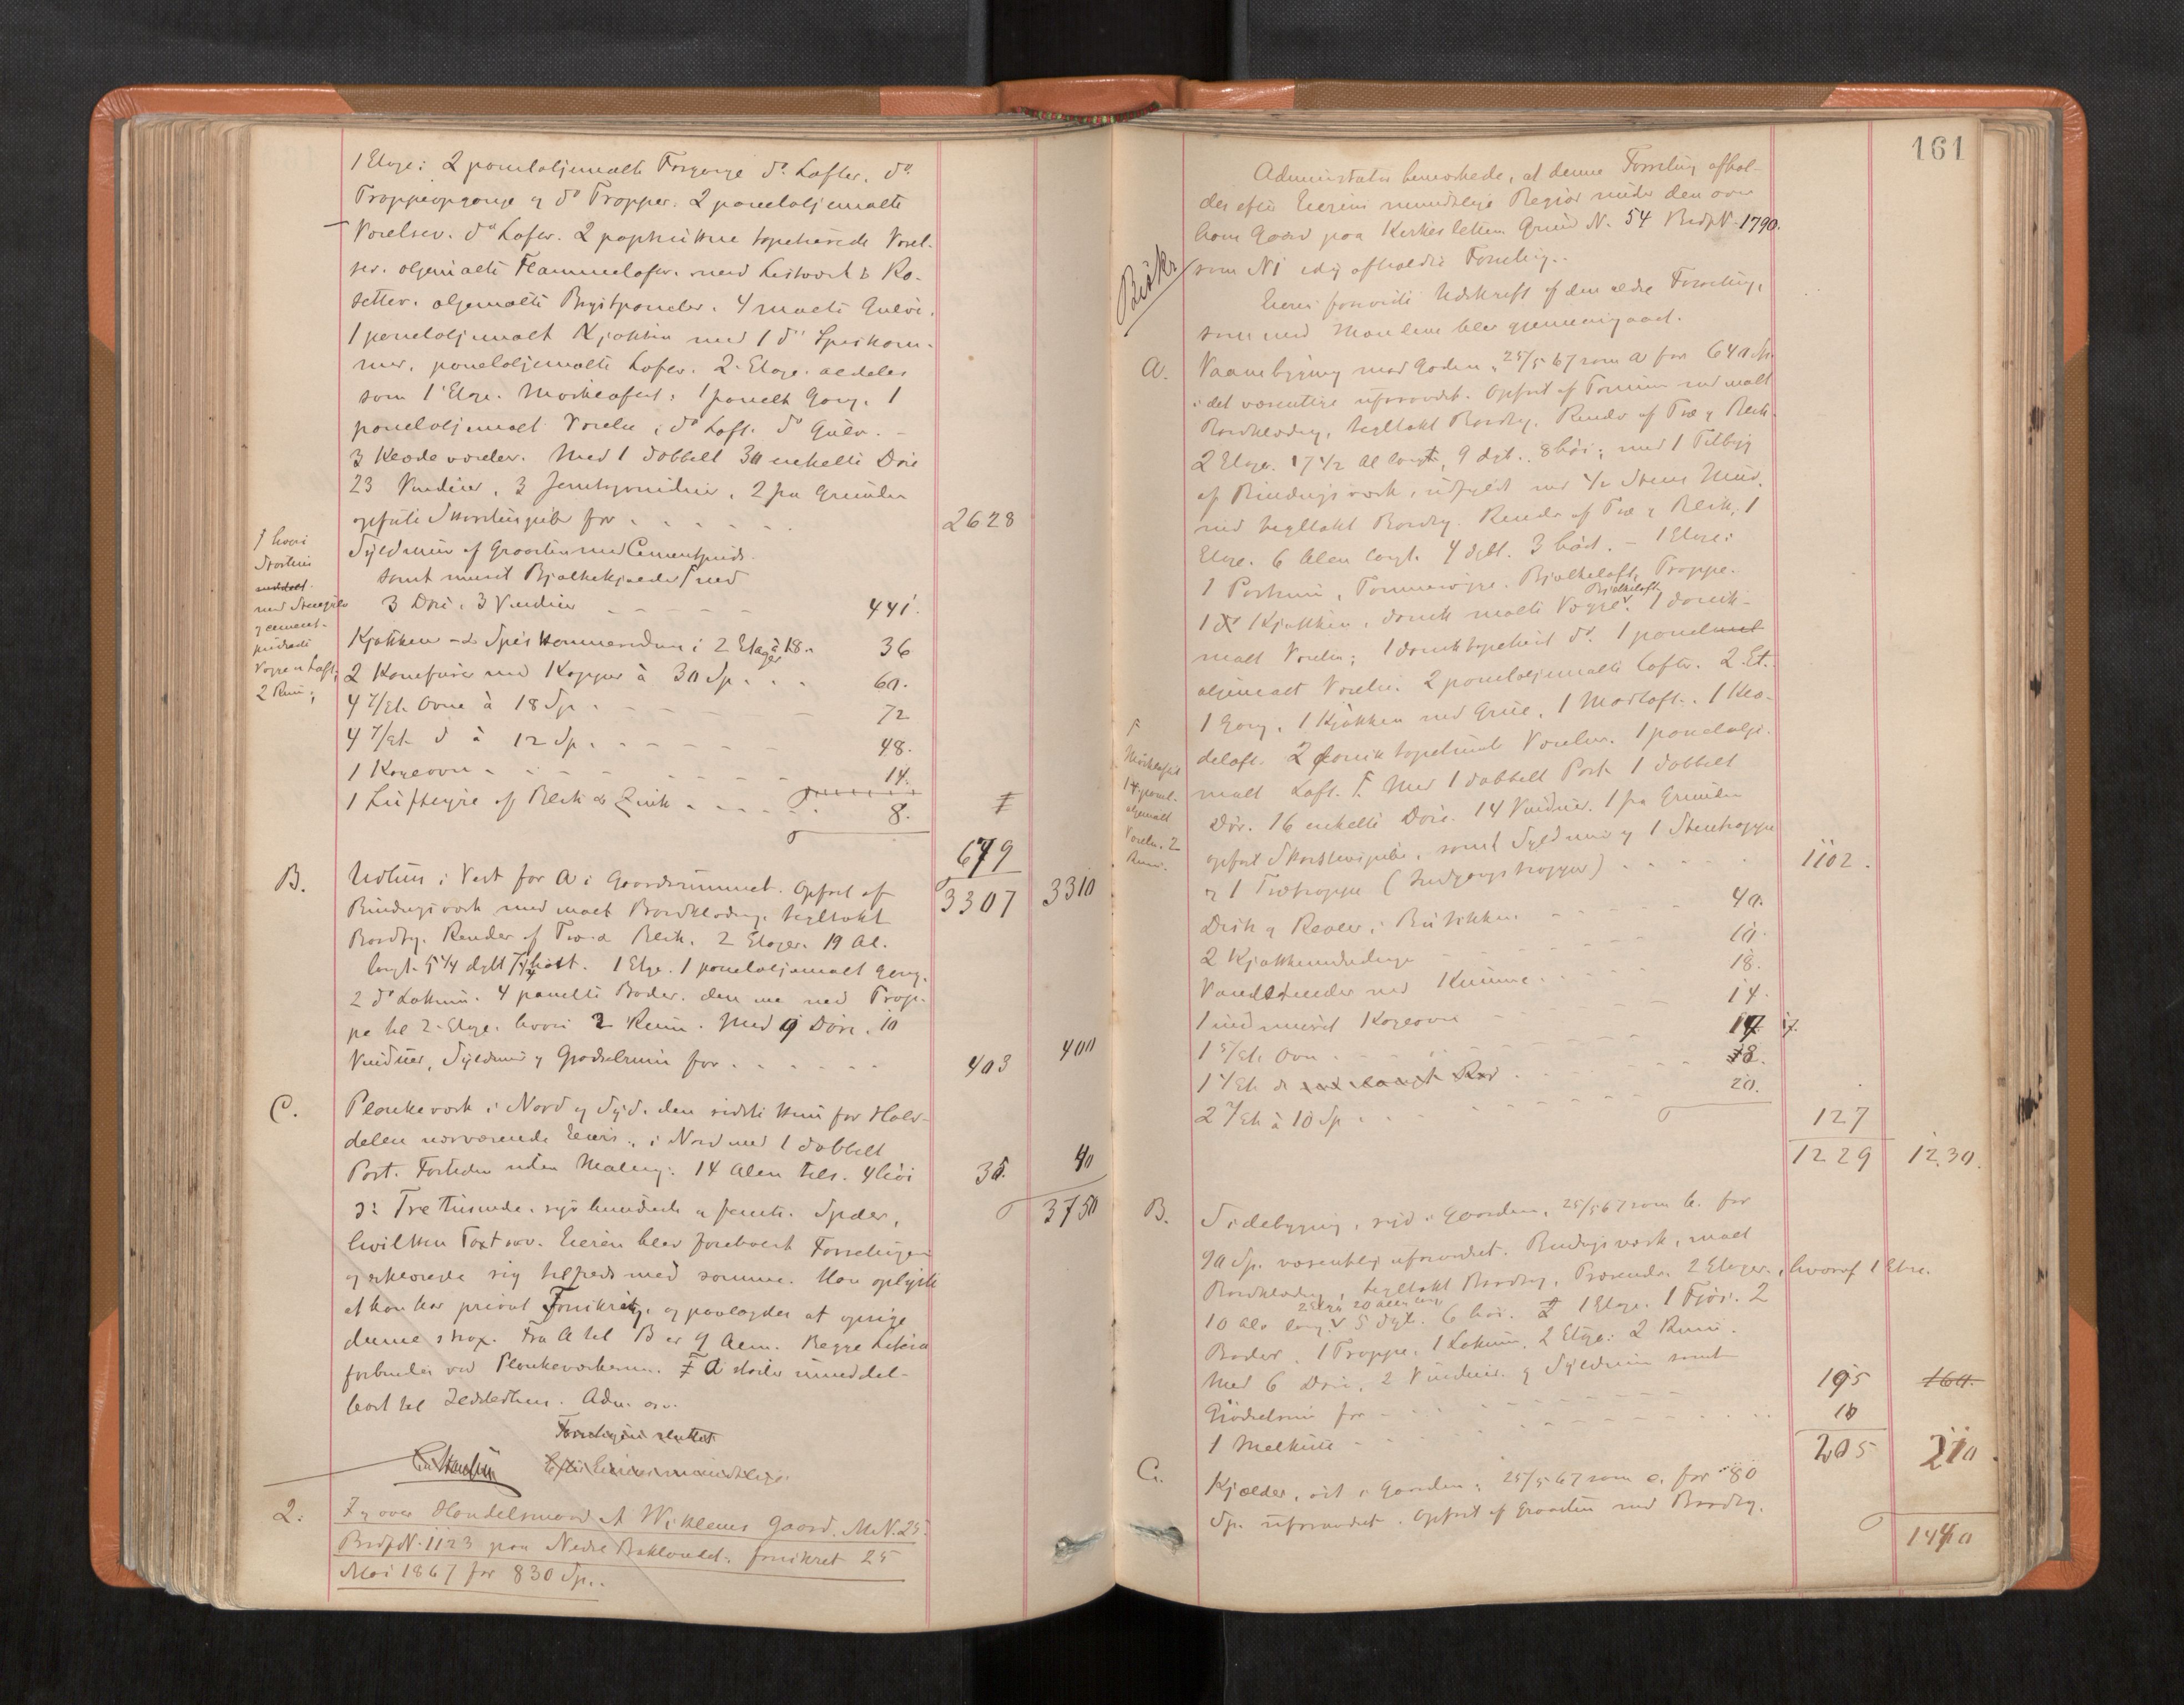 1 Etage: 2 paneloljemalte Forgange do Lofter. do
Trappeopgange og do Trapper. 2 paneloljemalte
Værelser. do Lofter. 2 tapetserede Værel-
ser. oljemalte Lofter. med Listværk & Ro-
setter. oljemalte Brystpaneler. 4 malte Gulve.
1 paneloljemalt Kjøkken med 1 do Spiskam-
mer, paneloljemalte Lofter. 2 Etage. aldeles
som 1 Etage. Mørkeloftet: 1 panelt Gang. 1
paneloljemalt Værelse, do Loft. do Gulv. -
3 Klædeværelser. Med 1 dobbelt 30 enkelte Døre
23 Vinduer, 3 , 2 fra Grunden
opførte Skorstenspiber for 2628
f hvori
Skorsten
med Stengulv
og cement-
pudsede
Vægge og Loft,
2 Rum;
Syldmur af Graasten med Cementpuds
samt muret Bjælkekjælder f med
3 Døre. 3 Vinduer 441.
Kjøkken - & Spiskammerindr. i 2 Etager à 18. 36
2 Komfurer med Kapper à 30 Sp. 60.
4 7/Et. Ovne à 18 Sp. 72
4 7/Et. d à 12 Sp. 48.
1 Kogeovn 14.
1 af Blik & Zink 8.
679
3307 3310
B. Udhus i Vest for A i Gaardsrummet. Opført af
Bindingsværk med malt Bordklædng. tegltækt
Bordtag. Render af Træ & Blik. 2 Etager. 19 Al.
langt. 5 1/4 dybt høit. 1 Etge. 1 paneloljemalt Gang.
2 do Lokum. 4 panelte Boder. den ene med Trap-
pe til 2. Etage. hvori 2 Rum. Med 9 Døre. 10
Vinduer, Syldmur og Gjødselrum for 403 400
C. Plankeværk i Nord og Syd. den sidste kun for Halv-
delen nærværende Eiers., i Nord med 1 dobbelt
Port. Forsiden uden Maling. 14 Alen tils. 4 høi 35. 40
3750
ɔ: Tre tusinde, syv hundrede og femti. Spdlr,
hvilken Taxt osv. Eieren blev forelæst Forretningen
og erklærede sig tilfreds med samme. Han oplyste
at han har privat Forsikring. og paalagdes at opsige
denne strax. Fra A til B er 9 Alen. Begge Litera
forbundne ved Plankeværkerne. A støder umiddel-
bart til Adm. osv.
Forretningen sluttet
2: F og over Handelsmand A Wiklems Gaard. M.N. 25.
BrdpN. 1123 paa Nedre Baklandet. forsikret 25
Mai 1867 for 830 Sp..
161
Administrator bemærkede, at denne Forretning afhol-
des efter Eierens mundtlige Begjær under den over
hans Gaard paa Kirkesletten Grund N. 54 BrdpN. 1790.
som N 1 idag afholdte Forretning.
Eieren foreviste Udskrift af den ældre Forretning,
som med Mændene blev gjennemgaaet.
A. Vaanebygning mod Gaden, 25/5 67 som a for 640 Sp.
i det væsentlige uforandret. Opført af Tømmer med malt
Bordklædng, tegltækt Bordtag. Render af Træ & Blik.
2 Etager. 17 1/2 Al langt, 9 dybt. 8 høi; med 1 Tilbyg
af Bindingsværk, udfyldt med 1/2 Stens Mur,
med tegltækt Bordtag. Render af Træ & Blik, 1
Etage. 6 Alen langt. 4 dybt. 3 høit. - 1 Etage:
1 Portrum, Tømmervægge. Bjælkeloft, Trappe.
1 Kjøkken, malte Vægge. Bjælkeloft 1
malt Værelse; 1 tapetseret do. 1 panel
oljemalt Værelse. 2 paneloljemalte Lofter. 2 Et.
1 Gang. 1 Kjøkken med Grue. 1 Madloft. 1 Klæ-
deloft. 2 tapetserede Værelser. 1 panelolje-
malt Loft. F. Med 1 dobbelt Port 1 dobbelt
Dør. 16 enkelte Døre. 14 Vinduer. 1 fra Grunden
opført Skorstenspibe, samt Syldmur og 1 Stentrappe
og 1 Trætrappe (Indgangstrapper) 1102.
F
Mørkloftet
1 panel-
oljemalt
Værelse. 2
Rum.
Disk og Reoler i Butikken 40.
2 Kjøkkenindredninger 10.
Vandtønder med Kumme 18.
1 indmuret Kogeovn 14.
1 5/Et. Ovn 17.
1 4/Et. do 8.
2 7/Et à 10 Sp 20.
127
1229 1230.
B. Sidebygning, syd i Gaarden, 25/5 67 som b. for
90 Sp. væsentlig uforandret. Bindingsværk, malt
Bordklædng, tegltækt Bordtag, Trærender. 2 Etager., hvoraf 1 Etge.
10 Aln lang. 2 Etge 20 alen lang 5 dybt. 6 høi. 1 Etage. 1 Fjøs. 2
Boder. 1 Trappe. 1 Lokum. 2 Etage: 2 Rum.
Med 6 Døre, 2 Vinduer. og Syldmur samt
Gjødselrum for 195
1 10
205 210.
C. Kjælder, øst i Gaarden, 25/5 67 som c. for 80
Sp. uforandret. Opført af Graasten med Bordtag.
1440